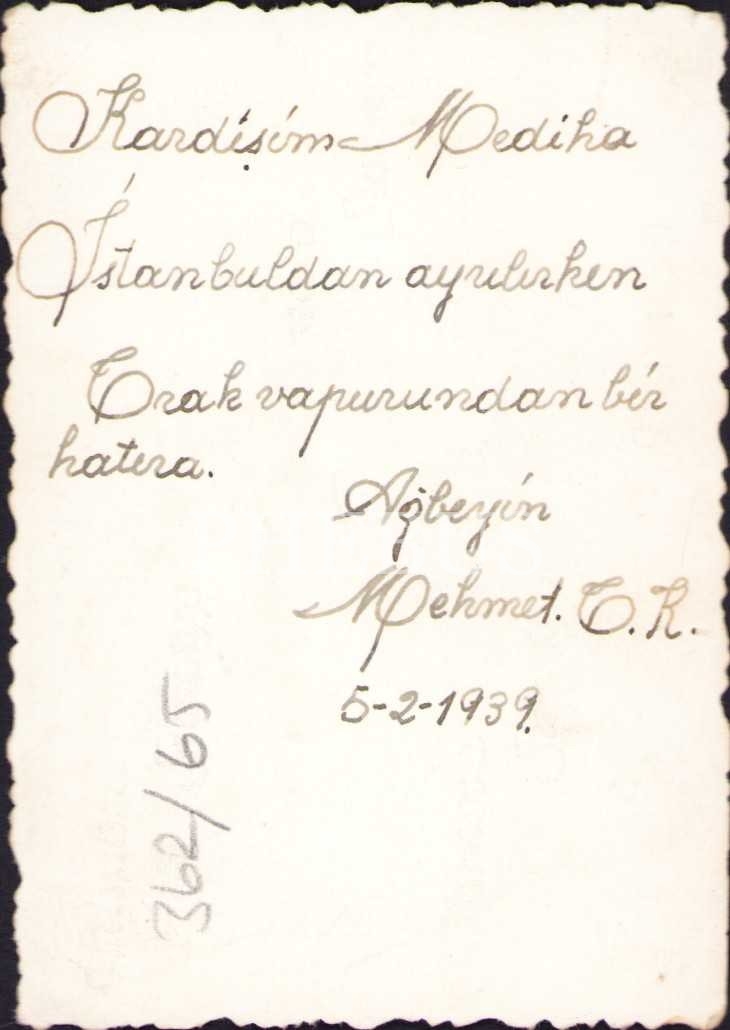 Kardişim Mediha
İstanbuldan ayrılırken
Trak vapurundan bir
hatıra.
Ağbeyin
Mehmet. T.K.
5-2-1939.
362/65